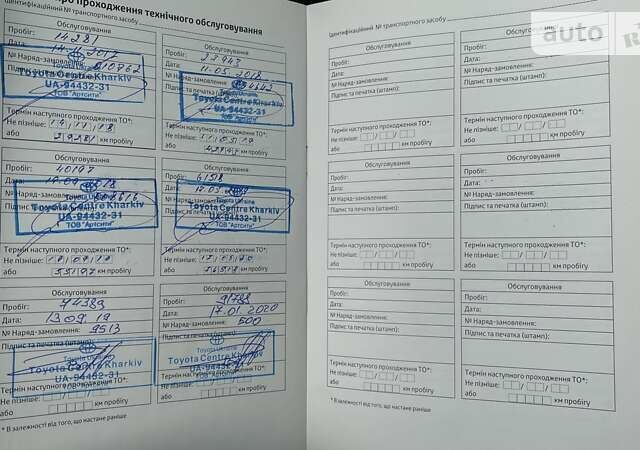 про проходження технічного обслуговування
Ідентифікаційний № транспортного засобу
Обслуговування
Пробіг: 14281
Дата:
№ Наряд-замовлення:
Підпис
Toyota Centre Kharkiv
UA-94432-31
ТОВ "Артсіті"
Термін наступного проходження ТО*:
Не пізніше: 14 11 18
або 29281 км пробігу
Обслуговування
Пробіг:
Дата: 11.05.2018
№ Наряд-замовлення:
Підпис та печатка
Toyota Centre Kharkiv
UA-94432-31
ТОВ "Артсіті"
Термін наступного проходження ТО*:
Не пізніше: 11 05 19
або км пробігу
Обслуговування
Пробіг: 40197
Дата:
№ Наряд-замовлення:
Підпис
Toyota Ukraine
Toyota Centre Kharkiv
UA-94432-31
ТОВ "Артсіті"
Термін наступного проходження ТО*:
Не пізніше: 18 09 19
або 55197 км пробігу
Обслуговування
Пробіг: 61518
Дата: 17.03.
№ Наряд-замовлення:
Підпис
Toyota Ukraine
Toyota Centre Kharkiv
UA-94432-31
ТОВ "Артсіті"
Термін наступного проходження ТО*:
Не пізніше: 17 03 20
або 76518 км пробігу
Обслуговування
Пробіг: 74389
Дата: 13 09 19
№ Наряд-замовлення: 9513
Підпис та печатка (штамп):
Toyota Ukraine
Toyota Centre Kharkiv
UA-94432-31
Термін наступного проходження ТО*:
Не пізніше:
або км пробігу
Обслуговування
Пробіг: 91788
Дата: 17.01.2020
№ Наряд-замовлення: 500
Підпис та печатка (штамп):
Toyota Ukraine
Toyota Centre Kharkiv
UA-94432-31
Термін наступного проходження ТО*:
Не пізніше:
або км пробігу
* В залежності від того, що настане раніше
Ідентифікаційний № транспортного засобу
auto RI
Обслуговування
Пробіг:
Дата:
№ Наряд-замовлення:
Підпис та печатка (штамп):
Термін наступного проходження ТО*:
Не пізніше:
або км пробігу
Дата:
№ Наряд-замовлення:
Підпис та печатка (штамп):
Термін наступного проходження ТО*:
Не пізніше:
або км пробігу
Обслуговування
Пробіг:
Дата:
№ Наряд-замовлення:
Підпис та печатка (штамп):
Термін наступного проходження ТО*:
Не пізніше:
або км пробігу
Обслуговування
Пробіг:
Дата:
№ Наряд-замовлення:
Підпис та печатка (штамп):
Термін наступного проходження ТО*:
Не пізніше:
або км пробігу
Обслуговування
Пробіг:
Дата:
№ Наряд-замовлення:
Підпис та печатка (штамп):
Термін наступного проходження ТО*:
Не пізніше:
або км пробігу
Обслуговування
Пробіг:
Дата:
№ Наряд-замовлення:
Підпис та печатка (штамп):
Термін наступного проходження ТО*:
Не пізніше:
або км пробігу
* В залежності від того, що настане раніше